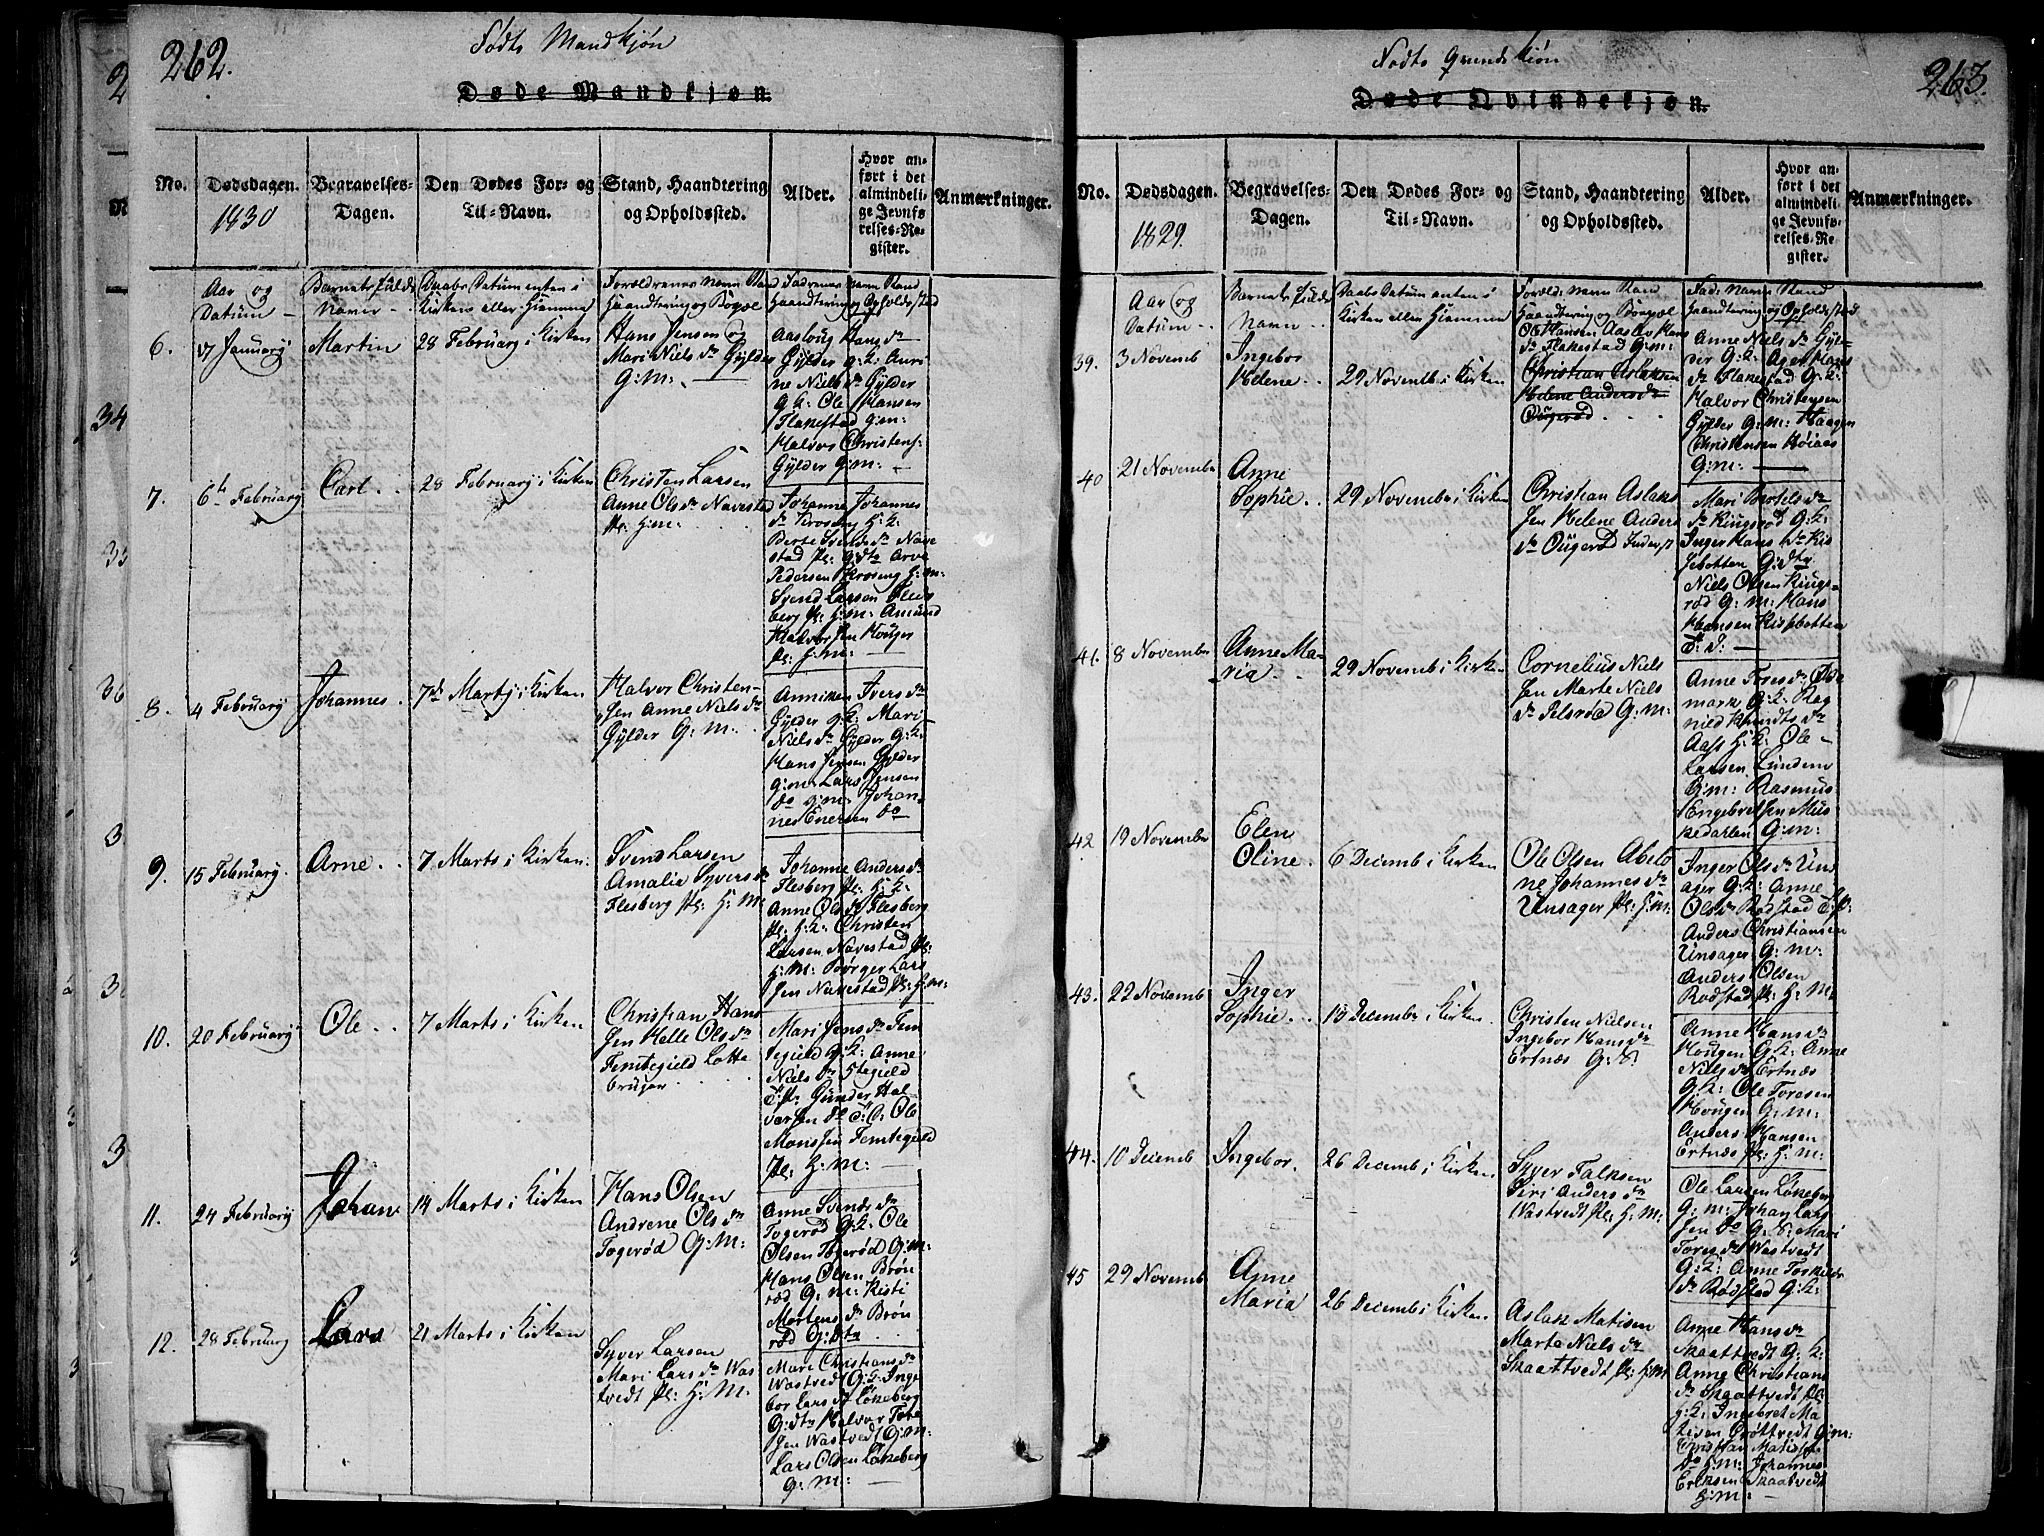 262.
Fødte Mandkjøn
Døde Mandkjøn.
No.
Dødsdagen.
1830
Begravelses-
Dagen.
Den Dødes For- og
Til-Navn.
Stand, Haandtering
og Opholdssted.
Alder.
Hvor an-
ført i det
almindeli-
ge Jevnfø-
relses-Re-
gister.
Anmærkninger.
Aar og
Datum
Barnets fulde
Navn
Daabs Datum enten i
Kirken eller Hiemme
Forældrenes Navn Stand
Haandtering og Bopæl
Faddernes Navn Stand
Haandtering og Opholdssted
6.
17 January
Martin
28 February i Kirken
Hans Jensen og
Mari Niels Dr Gylder
G: M:
Aasloug Hans Dr
Gylder G: K: Anri
ne Niels Dr Gylder
G K: Ole Hansen
Flakestad G: M:
Halvor Christens:
Gylder G: M:
7.
6te February
Carl
28 February i Kirken
Christen Larsen
Anne Ols Dr Navestad
Pl: H: M:
Johanne Johannes
Dr Kroseng H: K:
Berte Svends Dr Nave
stad Pl: G: dtr Arve
Pedersen Kroseng H: M:
Svend Larsen Fles
berg Pl: H: M: Amund
Halvorsen Houger
Pl: H: M:
8.
4 February
Johannes
7de Marts i Kirken
Halvor Christen-
sen Anne Niels Dr
Gylder G: M:
Anniken Ivers Dr
Gylder G: K: Mari
Niels Dr Gylder G: K:
Hans Jensen Gylder
G: M: Lars Jensen
do G: M: Johan
nes Enersen do
9.
15 February.
Arne
7 Marts i Kirken.
Svend Larsen
Amalia Syvers Dr
Flesberg Pl: H: M:
Johanne Anders Dr
Flesberg Pl: H: K:
Anne Ols Dr Flesberg
Pl: H: K: Christen
Larsen Navestad Pl:
H: M: Børger Lars
sen Navestad Pl: H: M:
10.
20 February
Ole
7 Marts i Kirken
Christian Hans
sen Helle Ols Dr
Femtegield Lotte
bruger
Mari Jens Dr Fem
tegield G: K: Anne
Niels Dr Stegield
T: P: Gunder Hal
vorsen do T: D: Ole
Monssen Femtegield
Pl: H: M:
11.
24 February
Johan
14 Marts i Kirken
Hans Olsen
Andrene Ols Dr
Togerød G: M:
Anne Svends Dr
Togerød G: K: Ole
Olsen Togerød G: M:
Hans Olsen Brøn
rød G: M: Kisti
Mortens Dr Brøn
rød G: dtr
12.
28 February
Lars
21 Marts i Kirken
Syver Larsen
Mari Lars Dr Was
tvedt Pl: H: M:
Mari Christians Dr
Wastvedt G: K: Inge
bor Lars Dr Løkeberg
G: dtr Halvor Tore
sen Wastvedt G: M:
Lars Olsen Løkeberg
G: M:
263.
Fødte Qvindekiøn
Døde Qvindekjøn.
No.
Dødsdagen.
1829.
Begravelses-
Dagen.
Den Dødes For- og
Til-Navn.
Stand, Haandtering
og Opholdssted.
Alder.
Hvor an-
ført i det
almindeli-
ge Jevnfø-
relses-Re-
gister.
Anmærkninger.
Aar og
Datum
Barnets fulde
Navn
Daabs Datum enten i
Kirken eller Hiemme
Foreld: Navn Stand
Haandtering og Bopæl
Fad: Navn Stand
Haandtering og Opholdsstad
39.
3 Novemb
Ingebor
Helene
29 Novemb i Kirken
Ole Hansen Aaslov Hans
Dr Flakestad G: M:
Christian Aslaksen
Helene Anders Dr
Ougerød
Anne Niels Dr Gyl-
der G: K: Ager Hans
Dr Flakestad G: K:
Halvor Christensen
Gylder G: M: Haagen
Christensen Röiaas
G: M:
40
21 Novembr
Anne
Sophie
29 Novembr i Kirken
Christian Aslaks
sen Helene Anders
Dr Ougerød Inderst
Mari Bertels Dr
Dr Ringsrød G: K:
Inger Hans Dr Ris
sebotten G: dtr
Niels Olsen Rings-
rød G: M: Hans
Hansen Rispbotten
T: D:
41.
8 Novembr
Anne Ma-
ria
29 Novemb i Kirken
Cornelius Niels
sen Marte Niels
Dr Pelsrød G: M:
Anne Tores Dr Øde
mark G: K: Rag
nild Knudts Dr
Aass H: K: Ole
Larsen Lunden
G: M: Rasmus
Engebretsen Mus
kedalen G: M:
42
19 Novembr
Elen
Oline
6 Decemb i Kirken
Ole Olsen Abelo
ne Johannes Dr
Unsager Pl: H: M:
Inger Ols Dr Uns
ager G: K: Anne
Ols Dr Rødstad T: P:
Anders Christiansen
Unsager G: M:
Anders Olsen
Rødstad Pl: H: M:
43.
22 Novemb
Inger
Sophie
13 Decembr i Kirken.
Christen Nielsen
Ingebor Hans Dr
Ertnæs G: S:
Anne Hans Dr
Hougen G: K: Anne
Niels Dr Ertnæs
G: K: Ole Toresen
Hougen G: M:
Anders Hansen
Ertnæs Pl: H: M:
44.
10 Decemb
Ingebor.
26 Decemb i Kirken
Syver Falksen
Siri Anders Dr
Wastvedt Pl: H: M:
Ole Larsen Løkeberg
G: M: Johan Lars
sen do G: S: Mari
Tores Dr Wastvedt
G: K: Anne Torkilds
Dr Rødstad G: K:
45
29 Novemb
Anne
Maria
26 Decemb i Kirken
Aslak Matisen
Marte Niels Dr
Skaattvedt Pl: H: M:
Anne Hans Dr
Skaattvedt G: K:
Anne Christians
Dr Skaattvedt Pl:
H: K: Ingebret Ma
tisen Brøttvedt G: M:
Christian Matisen
do H: M: Johannes
Eriksen Skaatvedt
H: M: